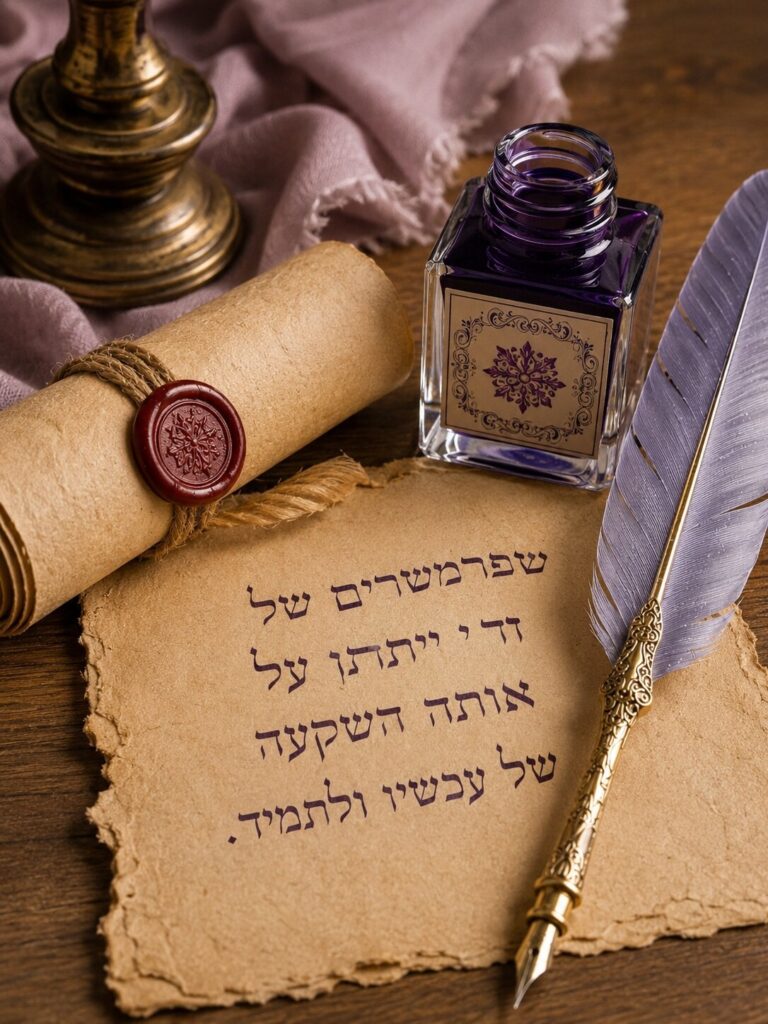 שפרמשרים של
זד י ייתתן על
אותה השקעה
של עכשיו ולתמיד.